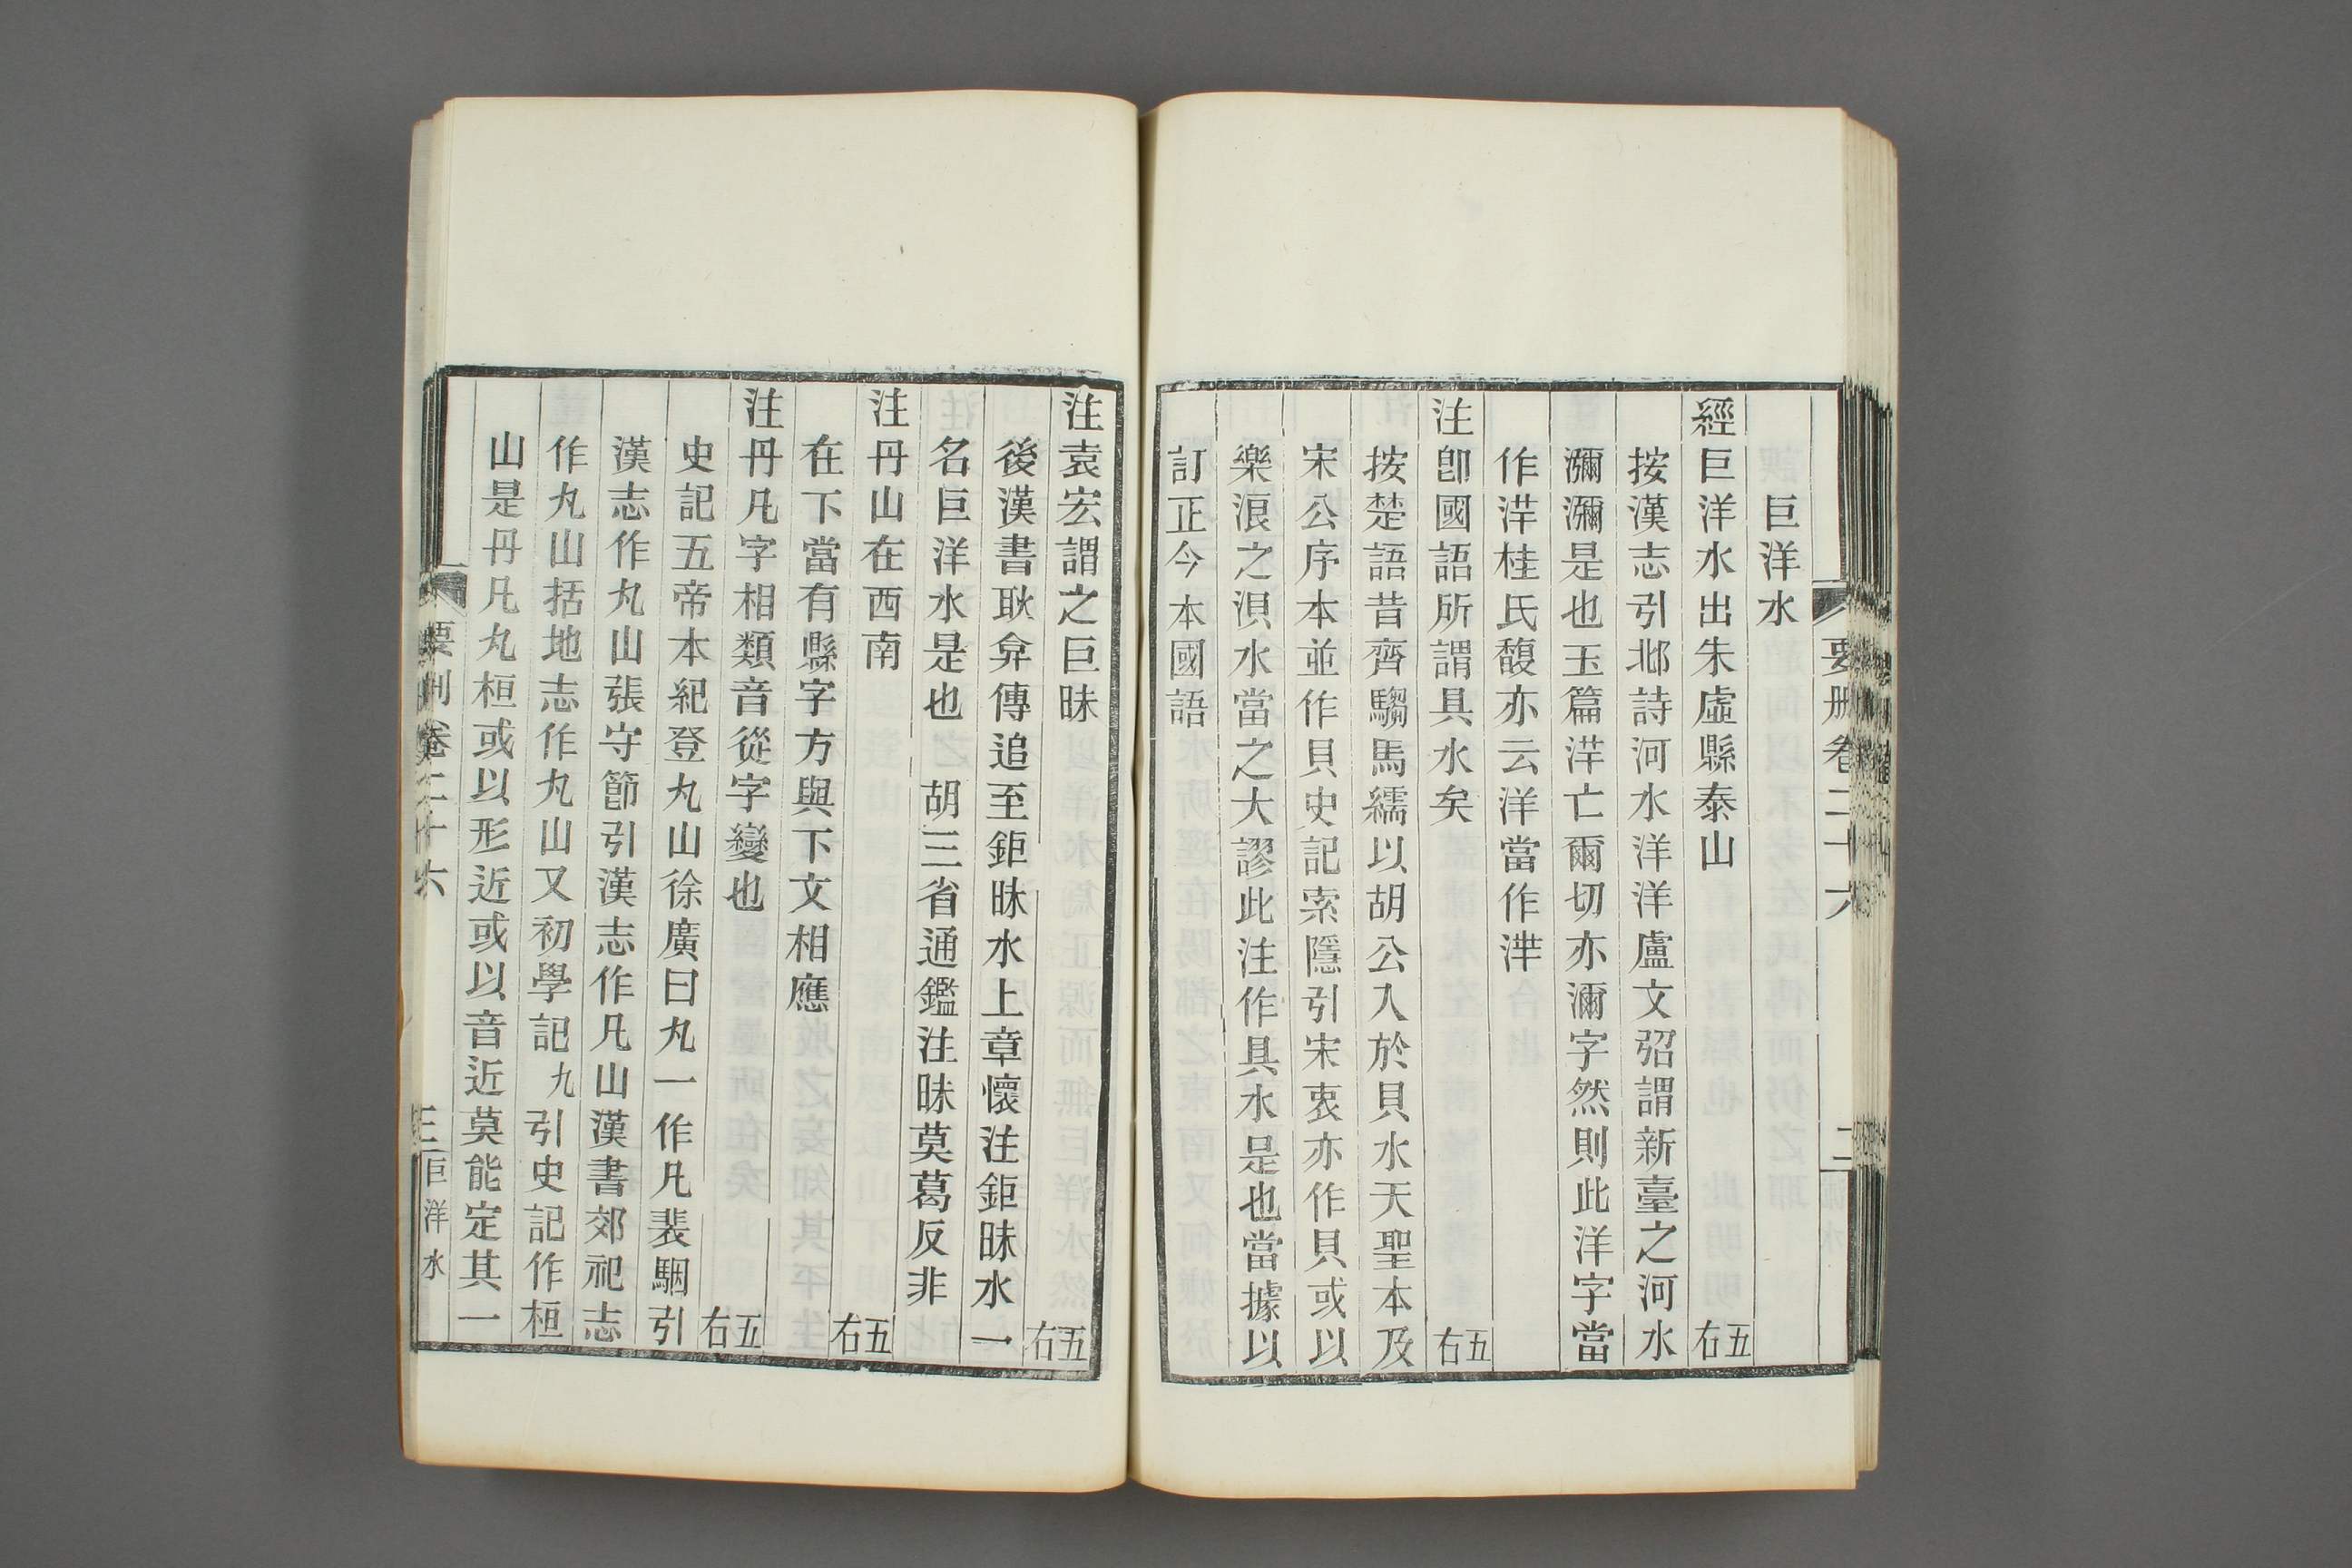 要刪卷二十六
二
巨洋水
經巨洋水出朱虛縣泰山 五右
按漢志引邶詩河水洋洋盧文弨謂新臺之河水
瀰瀰是也玉篇洋亡爾切亦瀰字然則此洋字當
作洋桂氏馥亦云洋當作
注卽國語所謂具水矣 五右
按楚語昔齊騶馬繻以胡公入於貝水天聖本及
宋公序本並作貝史記索隱引宋衷亦作貝或以
樂浪之浿水當之大謬此注作具水是也當據以
訂正今本國語
注袁宏謂之巨昧 五右
後漢書耿弇傳追至鉅昧水上章懷注鉅昧水一
名巨洋水是也 胡三省通鑑注昧莫葛反非
注丹山在西南 五右
在下當有縣字方與下文相應
注丹凡字相類音從字變也 五右
史記五帝本紀登丸山徐廣曰丸一作凡裴駰引
漢志作丸山張守節引漢志作凡山漢書郊祀志
作丸山括地志作丸山又初學記九引史記作桓
山是丹凡丸桓或以形近或以音近莫能定其一
要刪卷二十六
三
巨洋水